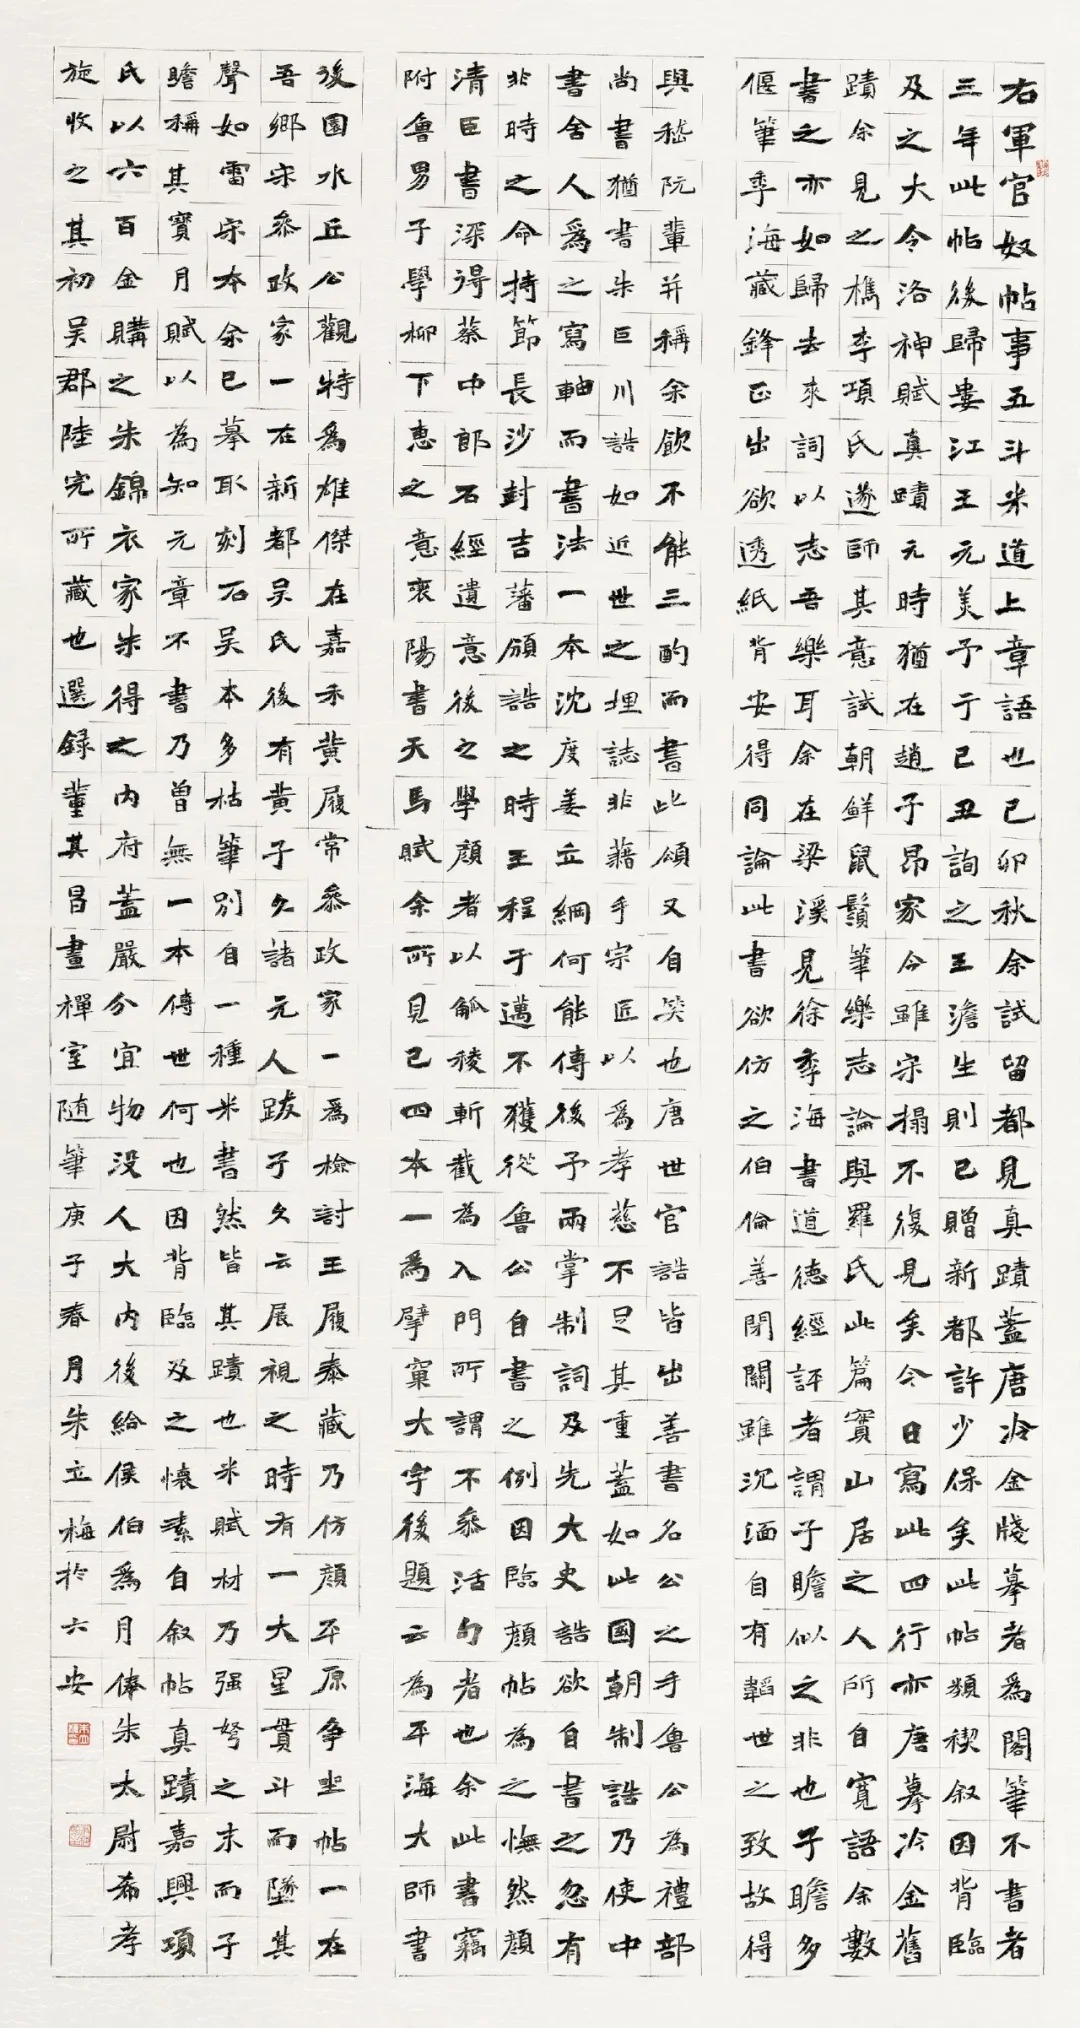 右軍官奴帖事五斗米道上章語也己卯秋余試留都見真蹟蓋唐冷金牋摹者為閣筆不書者
三年此帖後歸婁江王元美予于己丑詢之王澹生則已贈新都許少保矣此帖類禊敘因背臨
及之大令洛神賦真蹟元時猶在趙子昂家今雖宋搨不復見矣今日寫此四行亦唐摹冷金舊
蹟余見之檇李項氏遂師其意試朝鮮鼠鬚筆樂志論與羅氏此篇實山居之人所自寬語余數
書之亦如歸去來詞以志吾樂耳余在梁溪見徐季海書道德經評者謂子瞻似之非也子瞻多
偃筆季海藏鋒正出欲透紙背安得同論此書欲仿之伯倫善閉關雖沉湎自有韜世之致故得
與嵇阮輩并稱余飲不能三酌而書此頌又自笑也唐世官誥皆出善書名公之手魯公為禮部
尚書猶書朱巨川誥如近世之埋誌非藉手宗匠以為孝慈不足其重蓋如此國朝制誥乃使中
書舍人為之寫軸而書法一本沈度姜立綱何能傳後予兩掌制詞及先大史誥欲自書之忽有
非時之命持節長沙封吉藩頒誥之時王程于邁不獲從魯公自書之例因臨顏帖為之憮然顏
清臣書深得蔡中郎石經遺意後之學顏者以觚稜斬截為入門所謂不參活句者也余此書竊
附魯男子學柳下惠之意襄陽書天馬賦余所見已四本一為擘窠大字後題云為平海大師書
後園水丘公觀特為雄傑在嘉禾黃履常參政家一為檢討王履泰藏乃仿顏平原爭坐帖一在
吾鄉宋參政家一在新都吳氏後有黃子久諸元人跋子久云展視之時有一大星貫斗而墜其
聲如雷宋本余已摹取刻石吳本多枯筆別自一種米書然皆其蹟也米賦材乃强弩之末而子
瞻稱其寶月賦以為知元章不書乃曾無一本傳世何也因背臨及之懷素自敘帖真蹟嘉興項
氏以六百金購之朱錦衣家朱得之內府蓋嚴分宜物沒人大內後給侯伯為月俸朱太尉希孝
旋收之其初吳郡陸完所藏也選錄董其昌畫禪室随筆庚子春月朱立梅於六安